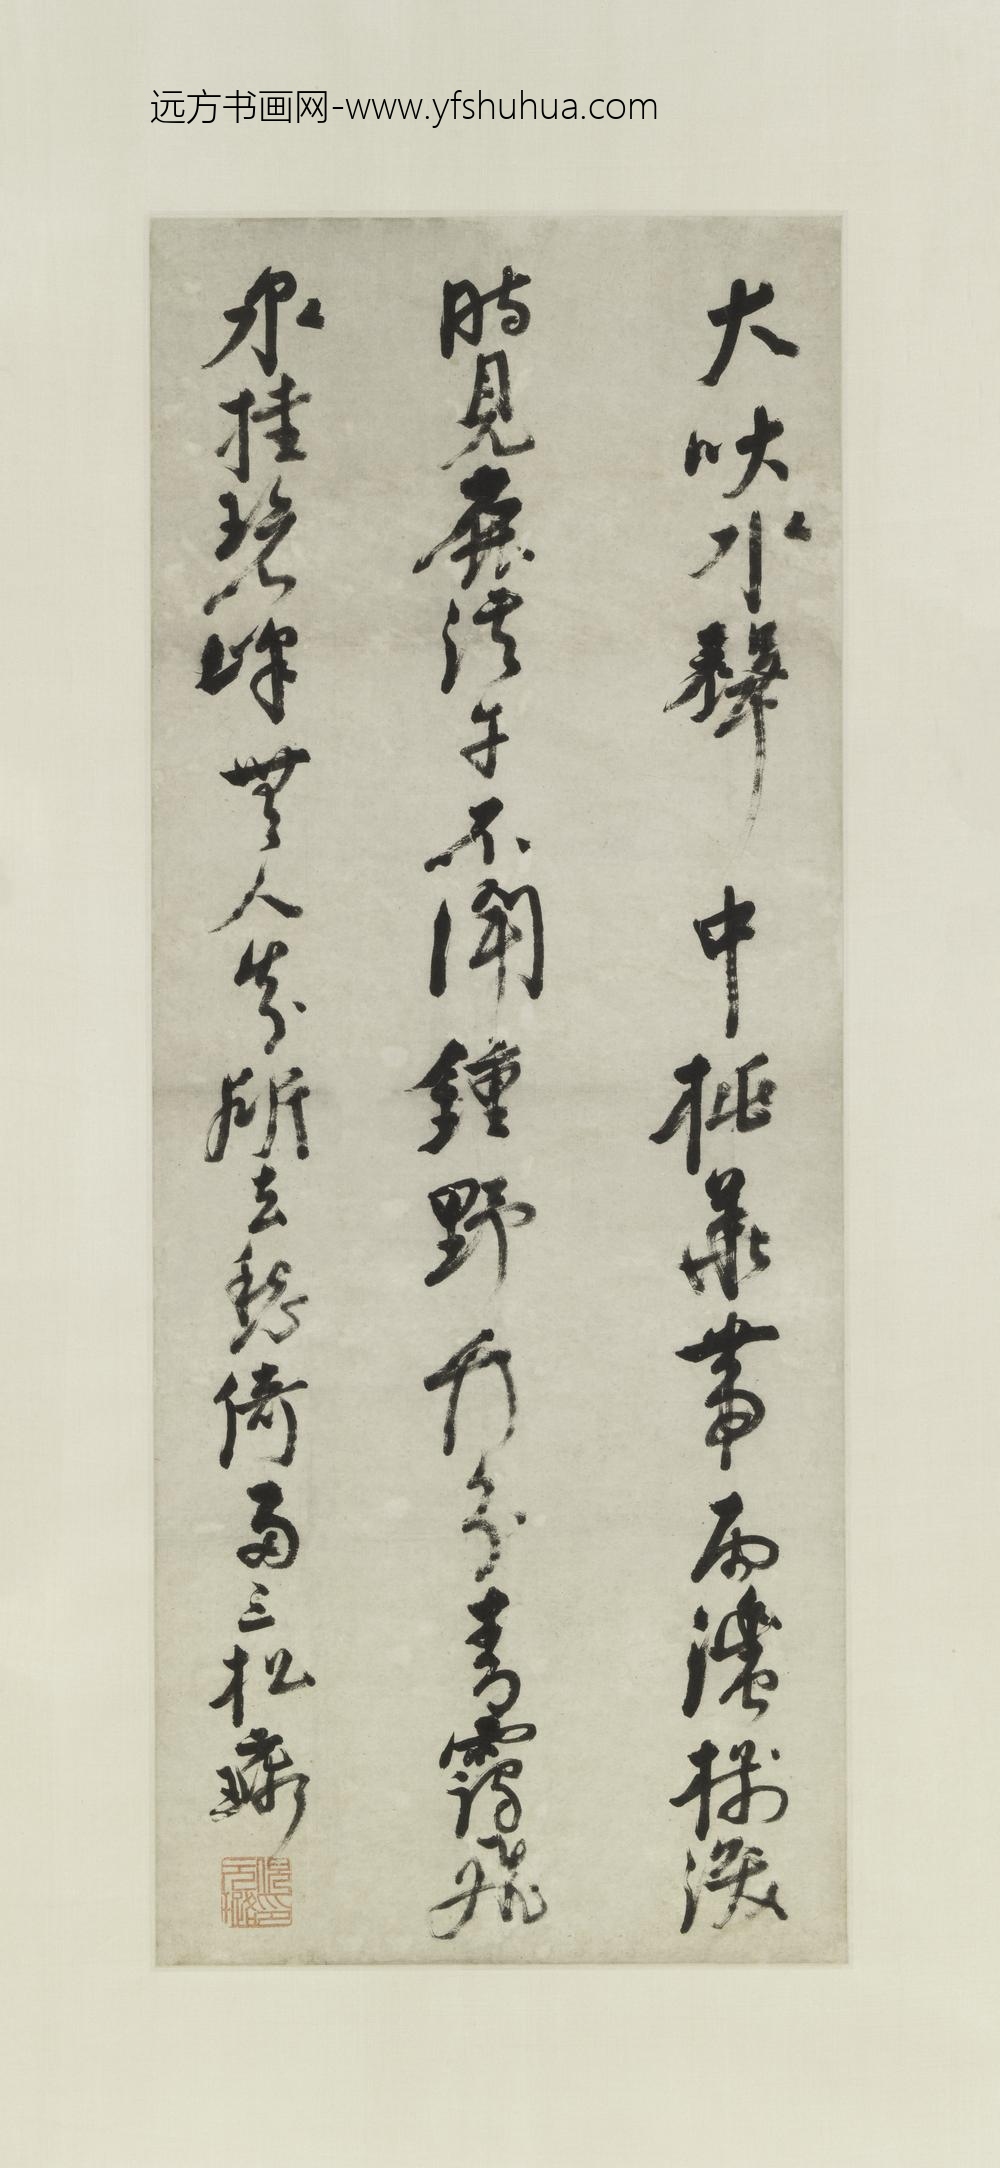 远方书画网-www.yfshuhua.com
犬吠水聲中桃華帶雨濃樹深
時見鹿溪午不聞鐘野竹分青靄飛
泉挂碧峰無人知所去愁倚兩三松元璐
倪印元璐